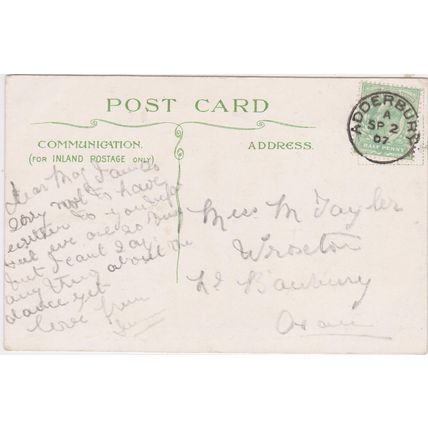 POST CARD
COMMUNICATION.
(FOR INLAND POSTAGE ONLY)
Dear May
sorry not to have
written to you before
but we are so busy
but I cant say
any thing about the
dance yet
love from
ADDRESS.
Miss M Tayler
Wroxton
Nr Banbury
Oxon
ADDERBURY
A
SP 2
07
HALF PENNY